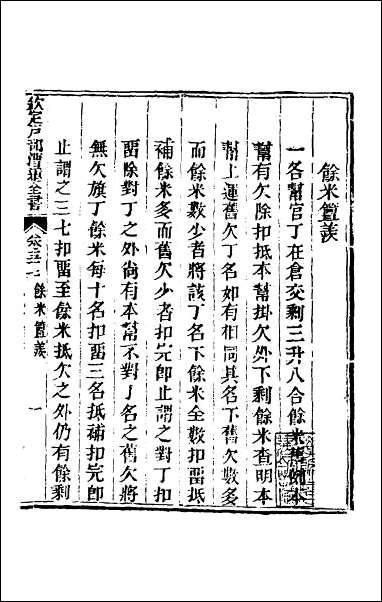 餘米簋羨
一各幫官丁在倉交剩三升八合餘米舊例本
幫有欠除扣抵本幫掛欠外下剩餘米查明本
幫上運舊欠丁名如有相同其名下舊欠數多
而餘米數少者將該丁名下餘米全數扣畱抵
補餘米多而舊欠少者扣完卽止謂之對丁扣
畱除對丁之外尙有本幫不對丁名之舊欠將
無欠旗丁餘米每十名扣畱三名抵補扣完卽
止謂之三七扣畱至餘米抵欠之外仍有餘剩
欽定戶部漕運全書
卷之五十七 餘米簋羨
一